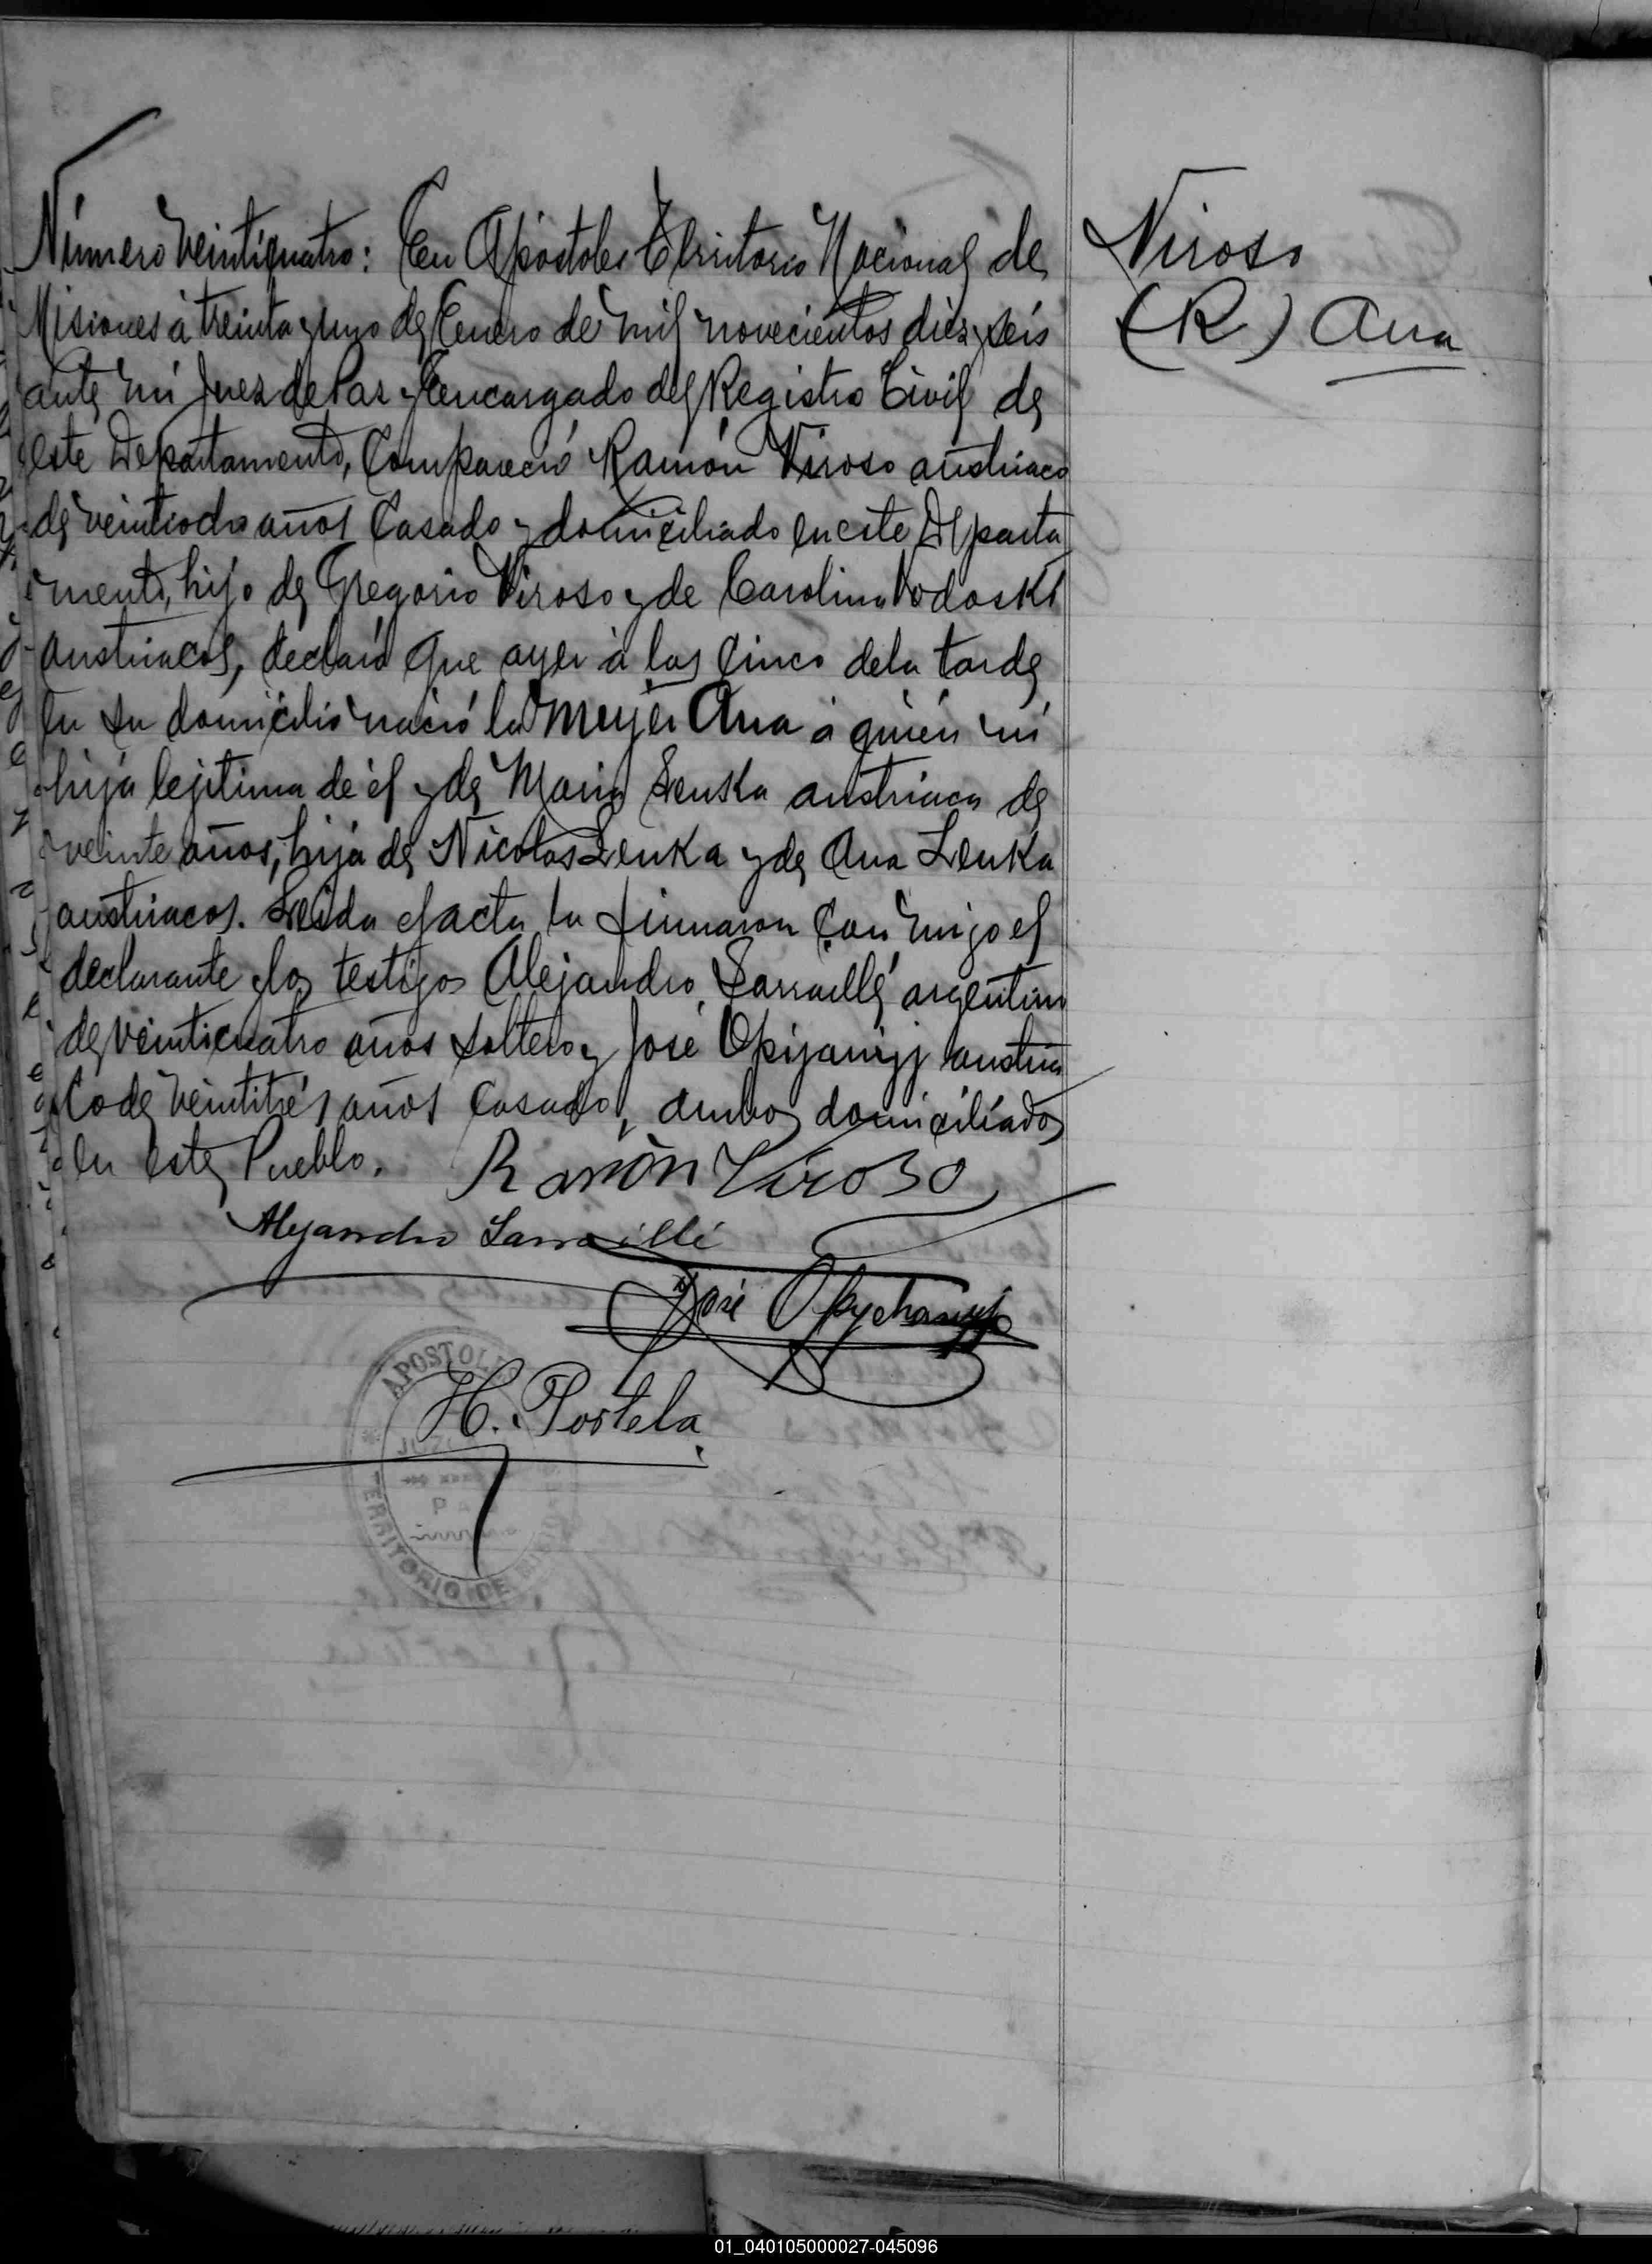 Número veinticuatro: En Apóstoles Territorio Nacional de
Misiones à treinta y uno de Enero de mil novecientos diez y seis
ante mi Juez de Paz y Encargado del Registro Civil de
este Departamento, Compareció Ramón Viroso austriaco
de veintiocho años Casado y domiciliado en este Departa
mento, hijo de Gregorio Viroso y de Carolina Vodoski
austriacos, declaró que ayer à las cinco de la tarde
en su domicilio nació la mujer Ana à quién vi
hija lejitima de él y de Maria Lenska austriaca de
veinte años, hija de Nicolas Lenka y de Ana Lenka
austriacos. Leida el acta la firmaron con migo el
declarante y los testigos Alejandro Sarraillé argentino
de veinticuatro años soltero y José Opijanijj austria
co de veintitrés años casado, ambos domiciliados
en este Pueblo. Ramòn Viroso
Alejandro Sarraillé
José Opychanyj
H. Portela
APOSTOL
JUZ
PA
TERRITORIO DE MI
Viroso
(R) Ana
01_040105000027-045096